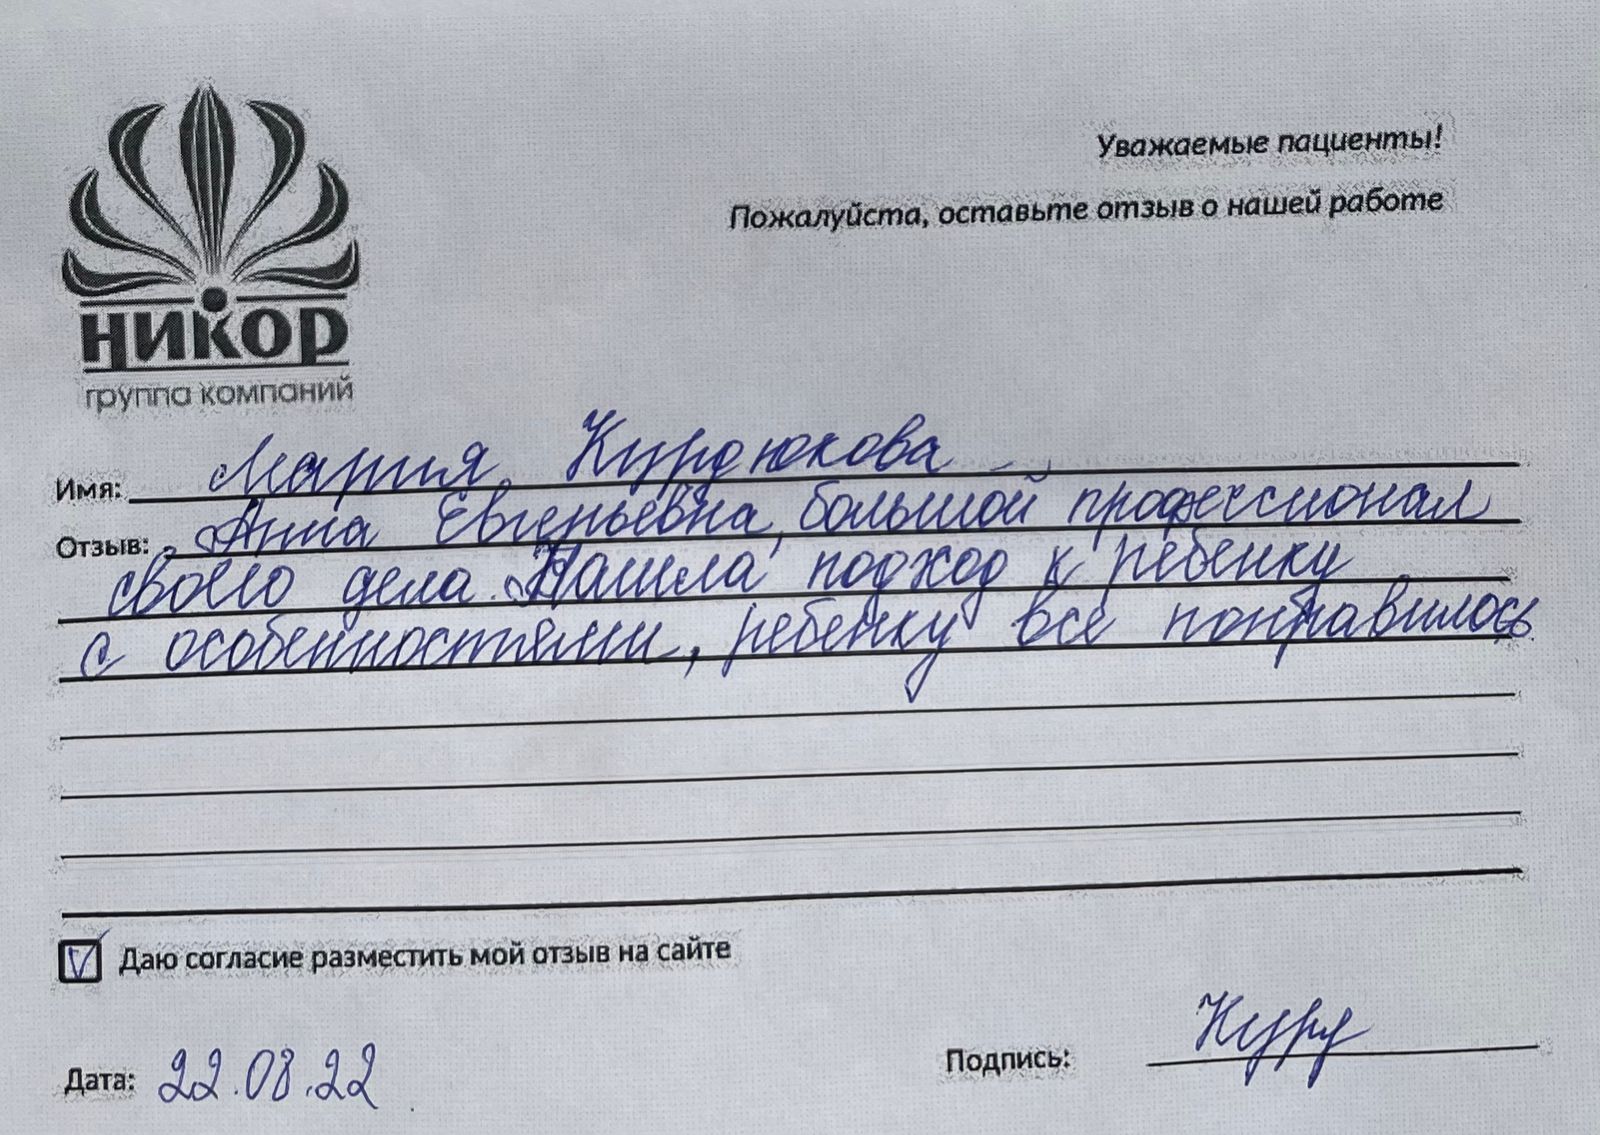 Уважаемые пациенты!
Пожалуйста, оставьте отзыв о нашей работе
НИКОР
группа компаний
Имя: Мария Курдюкова
Отзыв: Анна Евгеньевна, большой профессионал
своего дела. Нашла подход к ребенку
с особенностями, ребенку все понравилось
Даю согласие разместить мой отзыв на сайте
Дата: 22.08.22
Подпись: Курд